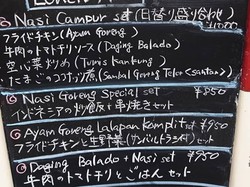 Nasi Campur set (日替り盛り合わせ)
フライドチキン (Ayam Goreng)
牛肉のトマトチリソース (Daging Balado)
空心菜炒め (Tumis Kankung)
たまごのココナッツ煮 (Sambal Goreng Telor &santan)
Nasi Goreng Special set ¥850
インドネシアの炒飯と串焼きセット
Ayam Goreng Lalapan Komplit set ¥950
フライドチキンと生野菜 (サンバルトラシ付) セット
Daging Balado + Nasi set ¥950
牛肉のトマトチリとごはん セット